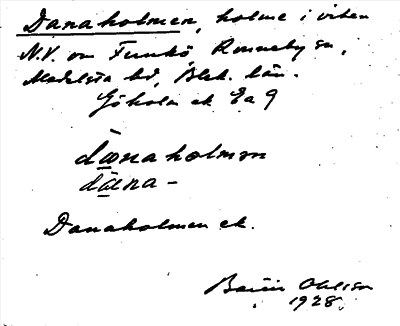 Danaholmen, holme i viken
N.V. om Funkö, Ronneby sn,
Medelsta hd, Blek. län.
Göholm ek Ea 9
dànaholmen
dàna-
Danaholmen ek.
Ohlsson
1928.